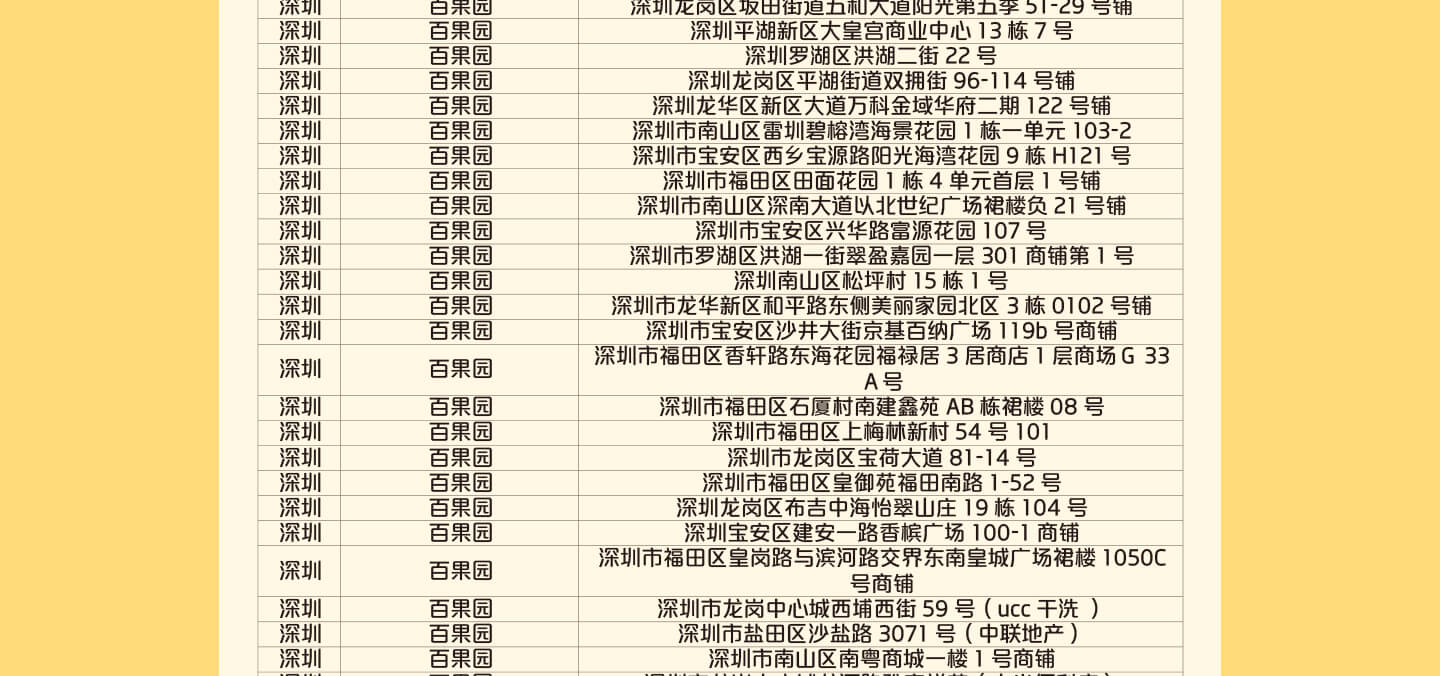 深圳 百果园 深圳龙岗区坂田街道五和大道阳光第五季 51-29 号铺
深圳 百果园 深圳平湖新区大皇宫商业中心 13 栋 7 号
深圳 百果园 深圳罗湖区洪湖二街 22 号
深圳 百果园 深圳龙岗区平湖街道双拥街 96-114 号铺
深圳 百果园 深圳龙华区新区大道万科金域华府二期 122 号铺
深圳 百果园 深圳市南山区雷圳碧榕湾海景花园 1 栋一单元 103-2
深圳 百果园 深圳市宝安区西乡宝源路阳光海湾花园 9 栋 H121 号
深圳 百果园 深圳市福田区田面花园 1 栋 4 单元首层 1 号铺
深圳 百果园 深圳市南山区深南大道以北世纪广场裙楼负 21 号铺
深圳 百果园 深圳市宝安区兴华路富源花园 107 号
深圳 百果园 深圳市罗湖区洪湖一街翠盈嘉园一层 301 商铺第 1 号
深圳 百果园 深圳南山区松坪村 15 栋 1 号
深圳 百果园 深圳市龙华新区和平路东侧美丽家园北区 3 栋 0102 号铺
深圳 百果园 深圳市宝安区沙井大街京基百纳广场 119b 号商铺
深圳 百果园 深圳市福田区香轩路东海花园福禄居 3 居商店 1 层商场 G 33
A 号
深圳 百果园 深圳市福田区石厦村南建鑫苑 AB 栋裙楼 08 号
深圳 百果园 深圳市福田区上梅林新村 54 号 101
深圳 百果园 深圳市龙岗区宝荷大道 81-14 号
深圳 百果园 深圳市福田区皇御苑福田南路 1-52 号
深圳 百果园 深圳龙岗区布吉中海怡翠山庄 19 栋 104 号
深圳 百果园 深圳宝安区建安一路香槟广场 100-1 商铺
深圳 百果园 深圳市福田区皇岗路与滨河路交界东南皇城广场裙楼 1050C
号商铺
深圳 百果园 深圳市龙岗中心城西埔西街 59 号（ucc 干洗 ）
深圳 百果园 深圳市盐田区沙盐路 3071 号（中联地产）
深圳 百果园 深圳市南山区南粤商城一楼 1 号商铺